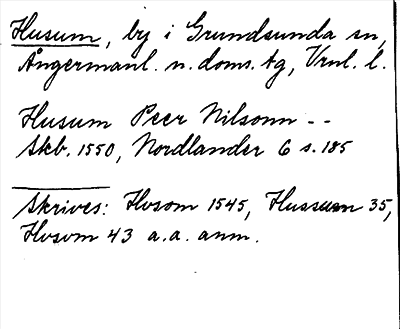 Husum, by i Grundsunda sn,
Ångermanl. n. doms. tg, Vrnl. l.
Husum Peer Nilsonn - -
Skb. 1550, Nordlander 6 s. 185
Skrives: Hosom 1545, Hussum 35,
Hosom 43 a.a. anm.